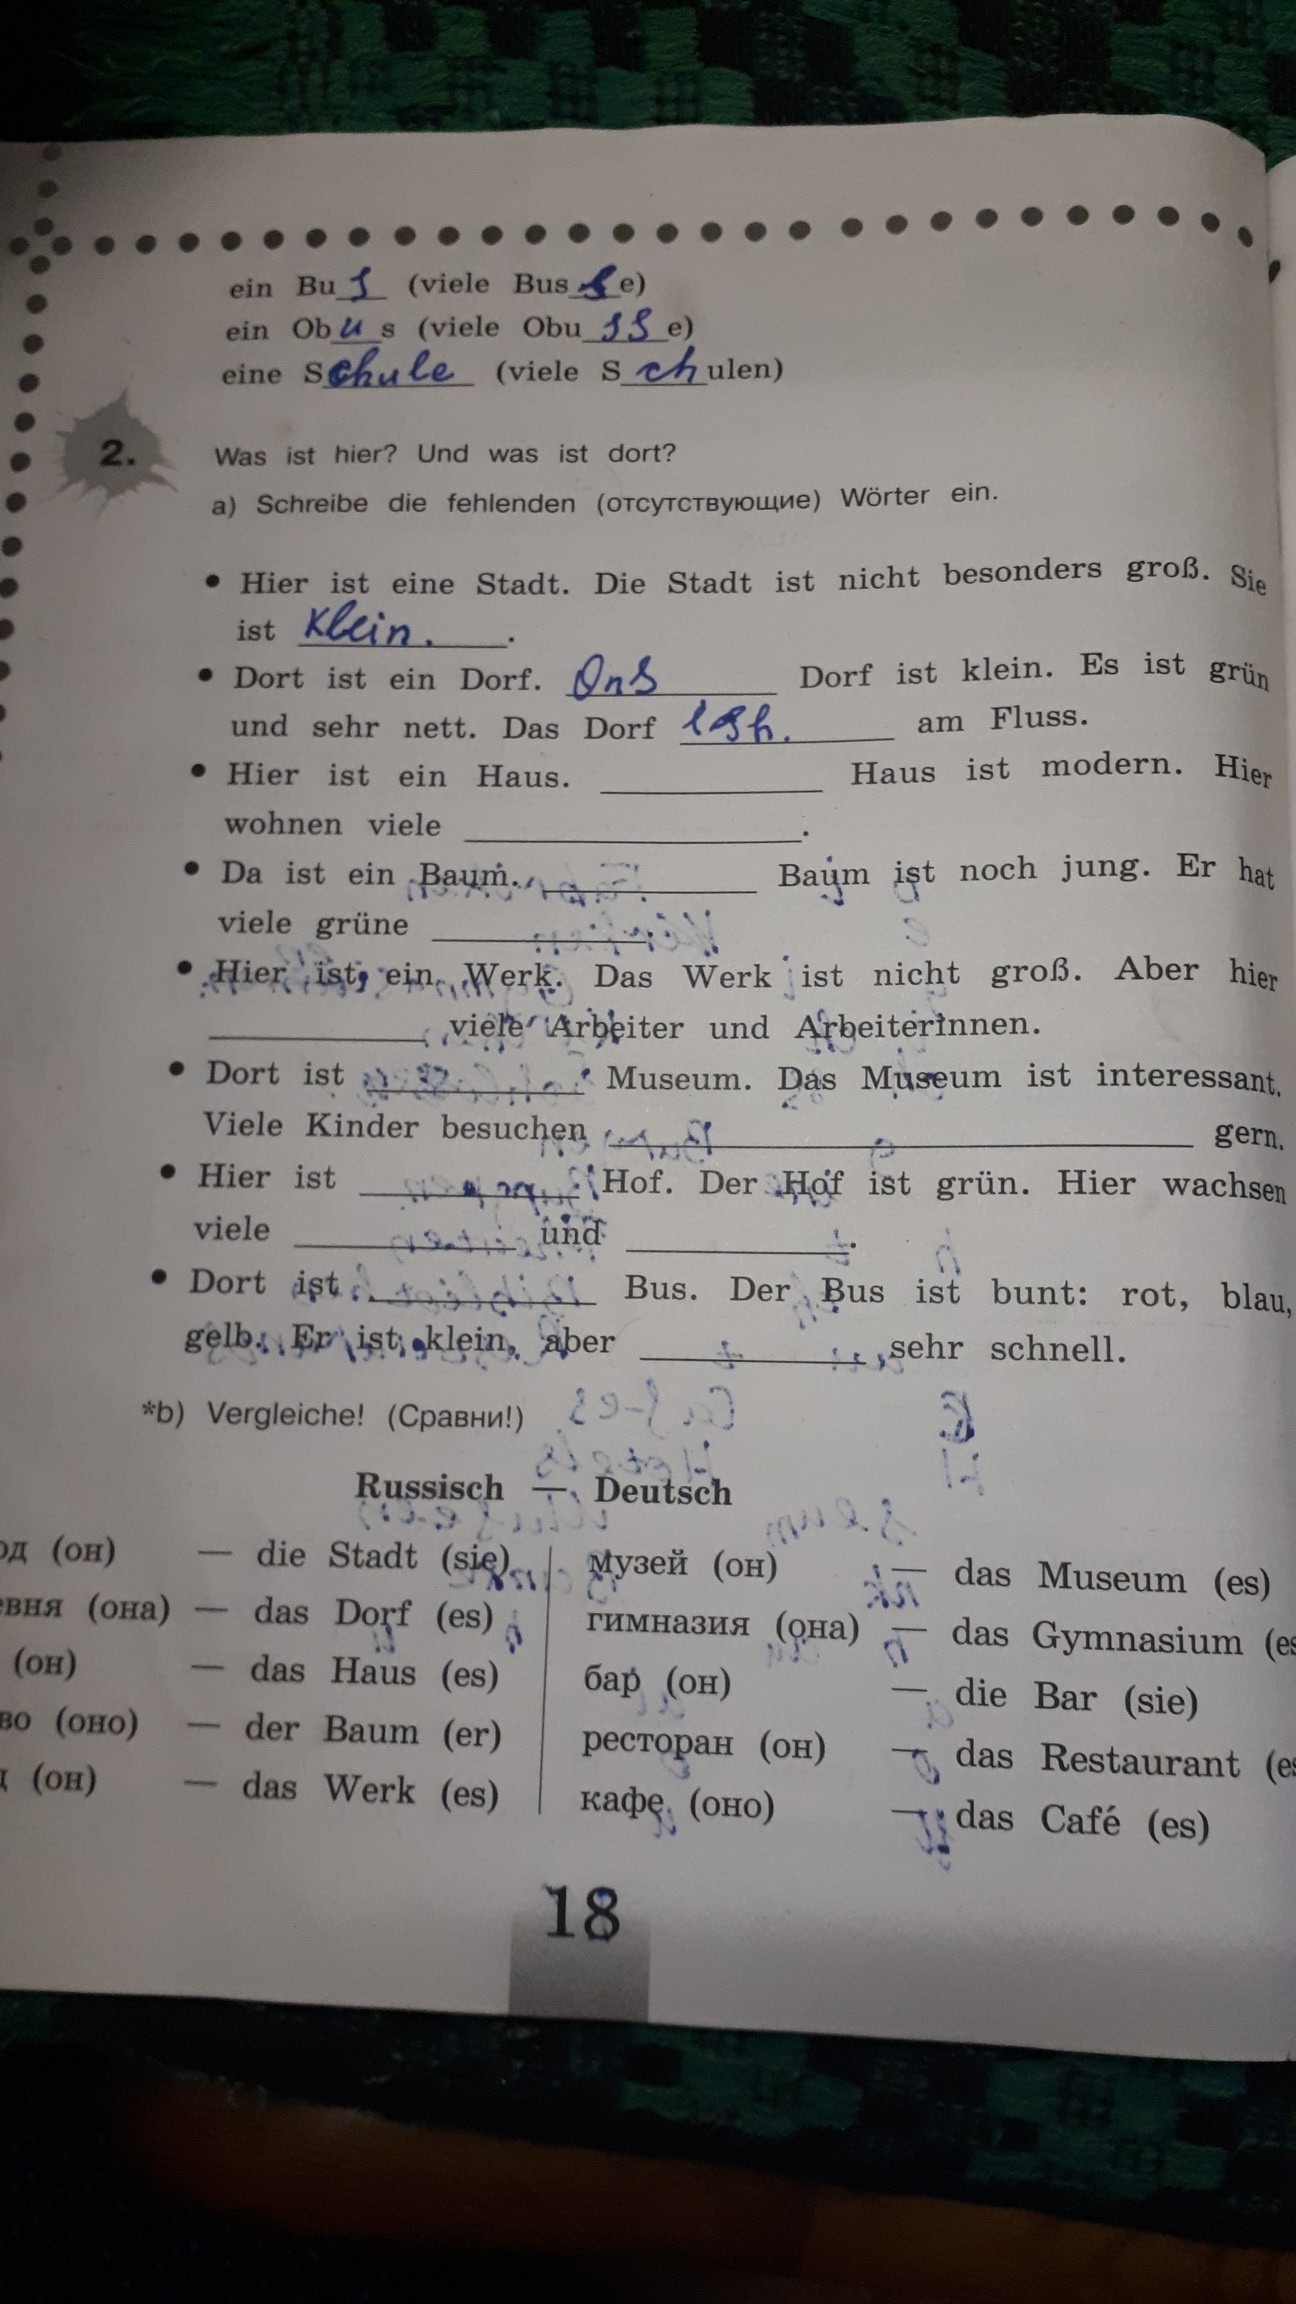 ein Bus (viele Busse)
ein Obus (viele Obusse)
eine Schule (viele Schulen)
2. Was ist hier? Und was ist dort?
a) Schreibe die fehlenden (отсутствующие) Wörter ein.
• Hier ist eine Stadt. Die Stadt ist nicht besonders groß. Sie
ist Klein. .
• Dort ist ein Dorf. Dorf ist klein. Es ist grün
und sehr nett. Das Dorf am Fluss.
• Hier ist ein Haus. Haus ist modern. Hier
wohnen viele .
• Da ist ein Baum. Baum ist noch jung. Er hat
viele grüne .
• Hier ist ein Werk. Das Werk ist nicht groß. Aber hier
viele Arbeiter und Arbeiterinnen.
• Dort ist Museum. Das Museum ist interessant.
Viele Kinder besuchen gern.
• Hier ist Hof. Der Hof ist grün. Hier wachsen
viele und .
• Dort ist Bus. Der Bus ist bunt: rot, blau,
gelb. Er ist klein, aber sehr schnell.
*b) Vergleiche! (Сравни!)
Russisch — Deutsch
од (он) — die Stadt (sie)
евня (она) — das Dorf (es)
(он) — das Haus (es)
во (оно) — der Baum (er)
д (он) — das Werk (es)
музей (он) — das Museum (es)
гимназия (она) — das Gymnasium (es
бар (он) — die Bar (sie)
ресторан (он) — das Restaurant (es
кафе (оно) — das Café (es)
18